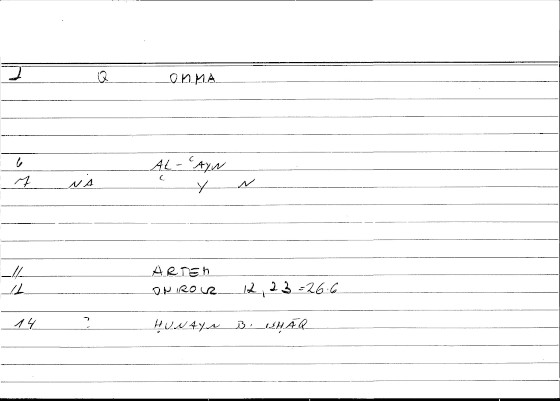 1 Q OMMA
6 AL-ʿAYN
7 NA ʿ Y N
11 ARTEM
12 ONIROCR 12,23=26.6
14 ? ḤUNAYN B. ISḤĀQ